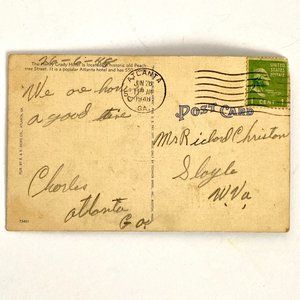 The Henry Grady Hotel is located on historic old Peach-
tree Street. It is a popular Atlanta hotel and has 550
26-6-48
We are hav
a good time
Charles
Atlanta
Ga
ATLANTA
JUN 26
GA.
POST CARD
UNITED STATES
POSTAGE
1 CENT 1
Mr Richard Christon
Slagle
W. Va